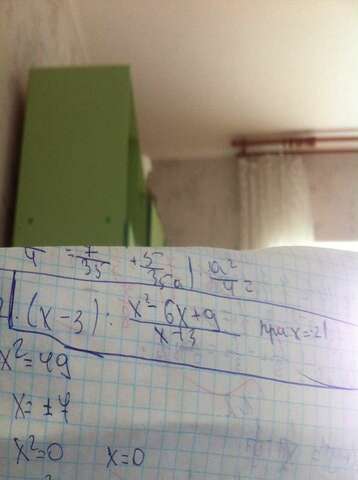 = 1/35 + 35/35a | a²/4²
(x-3) : x²-6x+9/x+3 при x=-21
x²=49
x=±7
x²=0 x=0